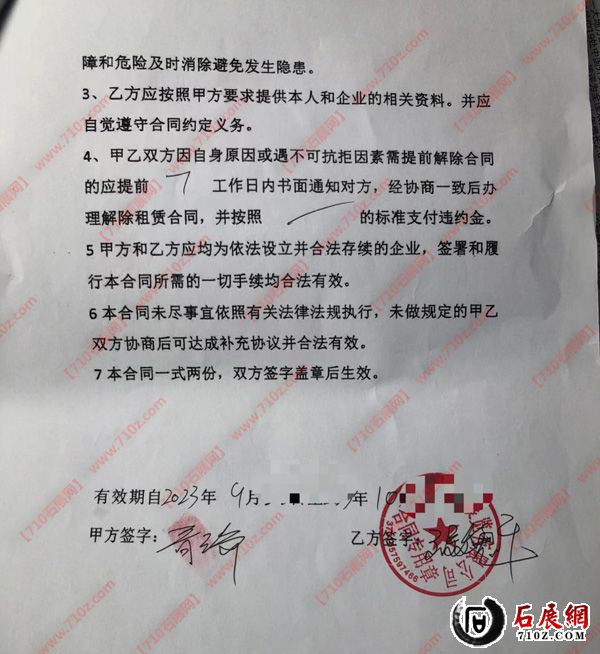 障和危险及时消除避免发生隐患。
3、乙方应按照甲方要求提供本人和企业的相关资料。并应
自觉遵守合同约定义务。
4、甲乙双方因自身原因或遇不可抗拒因素需提前解除合同
的应提前 7 工作日内书面通知对方，经协商一致后办
理解除租赁合同，并按照 的标准支付违约金。
5 甲方和乙方应均为依法设立并合法存续的企业，签署和履
行本合同所需的一切手续均合法有效。
6 本合同未尽事宜依照有关法律法规执行，未做规定的甲乙
双方协商后可达成补充协议并合法有效。
7 本合同一式两份，双方签字盖章后生效。
有效期自2023年 9月 年 10
甲方签字： 乙方签字：
公司
合同专用章
【710石展网】www.710z.com
石展網
710Z.COM